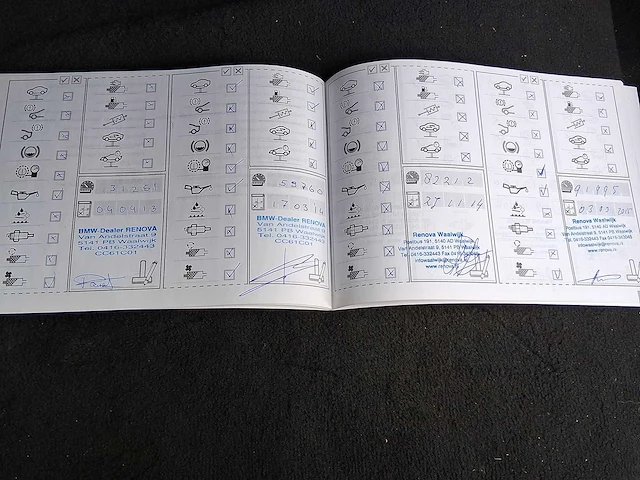 31261
040913
BMW-Dealer RENOVA
Van Andelstraat 9
5141 PB Waalwijk
Tel. 0416-332443
CC61C01
59760
170314
BMW-Dealer RENOVA
Van Andelstraat 9
5141 PB Waalwijk
Tel. 0416-332443
CC61C01
82212
251114
Renova Waalwijk
Postbus 191, 5140 AD Waalwijk
Van Andelstraat 9, 5141 PB Waalwijk
Tel. 0416-332443 Fax 0416-343046
infowaalwijk@renova.nl
www.renova.nl
91895
Renova Waalwijk
Postbus 191, 5140 AD Waalwijk
Van Andelstraat 9, 5141 PB Waalwijk
www.renova.nl